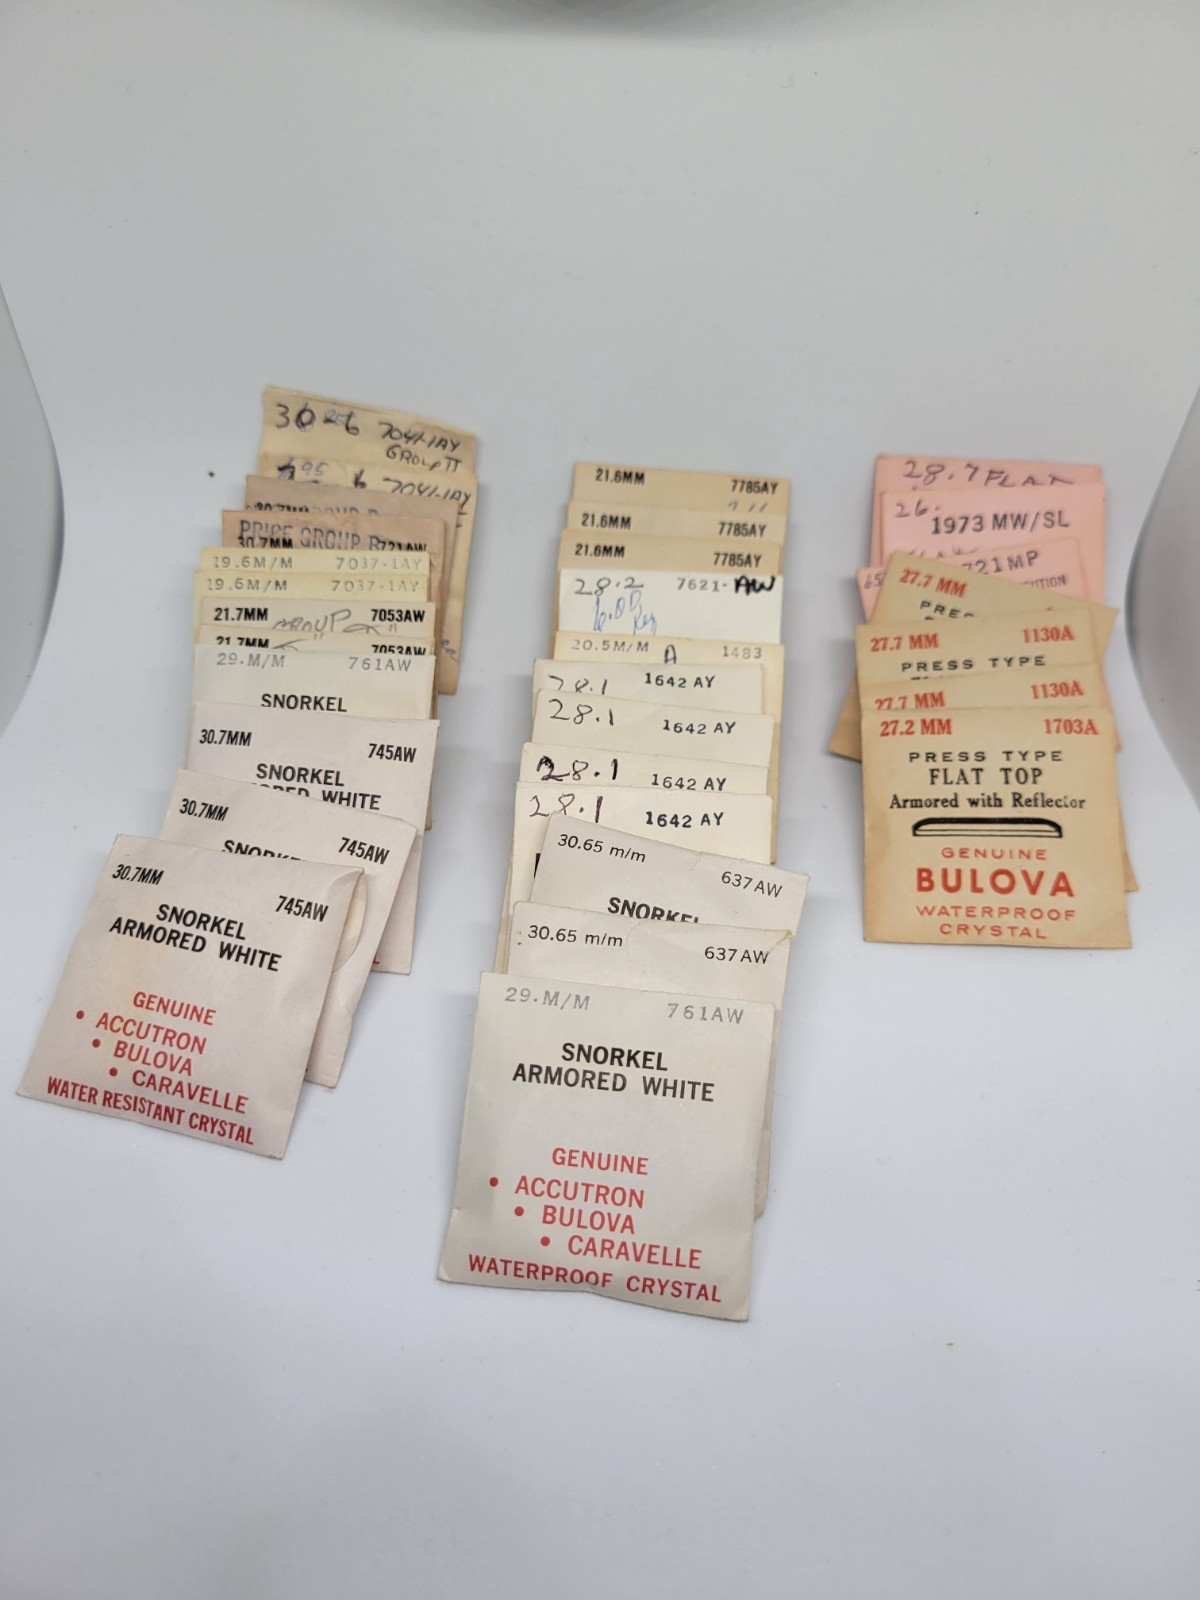 7041-1AY
GROUP II
95 7041-1AY
30.7MM
PRICE GROUP B
30.7MM 721AW
19.6M/M 7037-1AY
19.6M/M 7037-1AY
21.7MM 7053AW
GROUP
21.7MM 7053AW
29.M/M 761AW
SNORKEL
30.7MM 745AW
SNORKEL
ARMORED WHITE
30.7MM 745AW
SNORKEL
30.7MM 745AW
SNORKEL
ARMORED WHITE
GENUINE
• ACCUTRON
• BULOVA
• CARAVELLE
WATER RESISTANT CRYSTAL
21.6MM 7785AY
21.6MM 7785AY
21.6MM 7785AY
28.2 7621-AW
20.5M/M A 1483
28.1 1642 AY
28.1 1642 AY
28.1 1642 AY
28.1 1642 AY
30.65 m/m 637AW
SNORKEL
30.65 m/m 637AW
29.M/M 761AW
SNORKEL
ARMORED WHITE
GENUINE
• ACCUTRON
• BULOVA
• CARAVELLE
WATERPROOF CRYSTAL
28.7 FLAT
26.
1973 MW/SL
721MP
27.7 MM
PRES
27.7 MM 1130A
PRESS TYPE
27.7 MM 1130A
27.2 MM 1703A
PRESS TYPE
FLAT TOP
Armored with Reflector
GENUINE
BULOVA
WATERPROOF
CRYSTAL